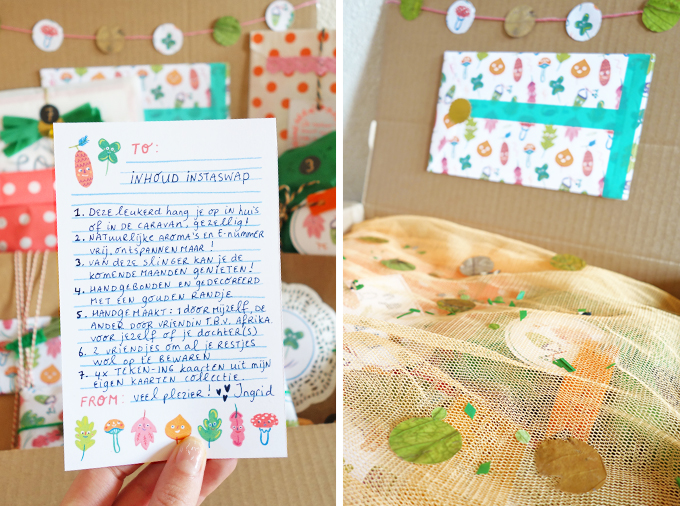 TO:
INHOUD INSTASWAP
1. DEZE LEUKERD HANG JE OP IN HUIS
OF IN DE CARAVAN, GEZELLIG!
2. NATUURLIJKE AROMA'S EN E-NUMMER
VRIJ, ONTSPANNEN MAAR!
3. VAN DEZE SLINGER KAN JE DE
KOMENDE MAANDEN GENIETEN!
4. HANDGEBONDEN EN GEDECOREERD
MET EEN GOUDEN RANDJE
5. HANDGEMAAKT: 1 DOOR MIJZELF, DE
ANDER DOOR VRIENDIN T.B.V. AFRIKA
VOOR JEZELF OF JE DOCHTER(S)
6. 2 VRIENDJES OM AL JE RESTJES
WOL OP TE BEWAREN
7. 4X TEKEN-ING KAARTEN UIT MIJN
EIGEN KAARTEN COLLECTIE.
FROM: VEEL PLEZIER! Ingrid